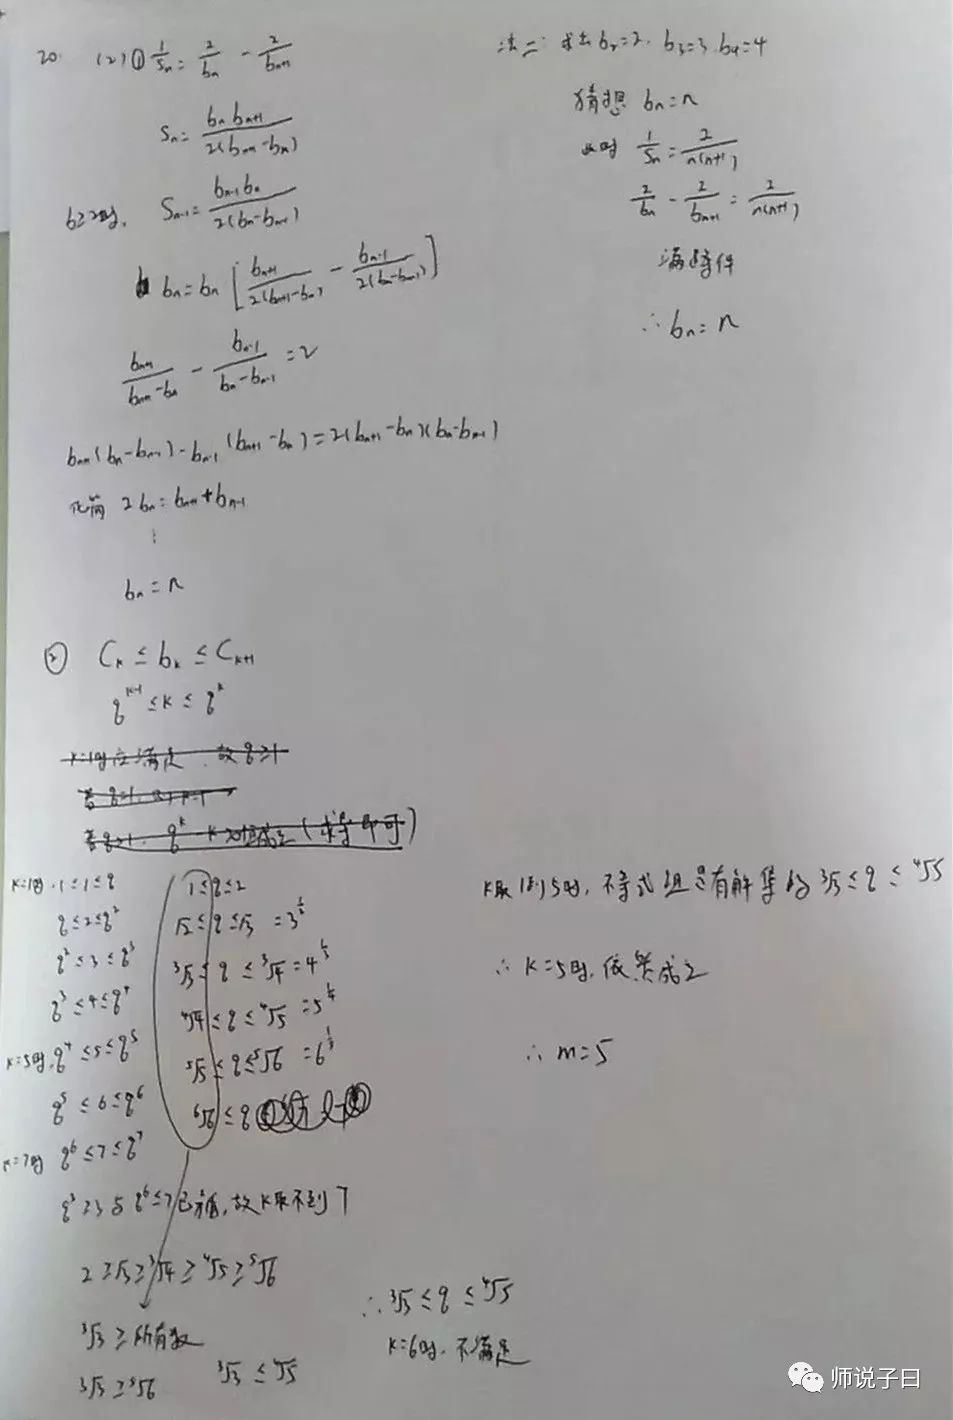 20. (2) ① 1/Sn = 2/bn - 2/bn+1
Sn = bn bn+1 / 2(bn+1 - bn)
b≥2时, Sn-1 = bn-1 bn / 2(bn - bn-1)
bn = bn [ bn+1 / 2(bn+1 - bn) - bn-1 / 2(bn - bn-1) ]
bn+1 / (bn+1 - bn) - bn-1 / (bn - bn-1) = 2
bn+1(bn - bn-1) - bn-1(bn+1 - bn) = 2(bn+1 - bn)(bn - bn-1)
化简 2bn = bn+1 + bn-1
⋮
bn = n
法二: 求出 b2=2. b3=3. b4=4
猜想 bn = n
此时 1/Sn = 2/n(n+1)
2/bn - 2/bn+1 = 2/n(n+1)
满足条件
∴ bn = n
② Ck ≤ bk ≤ Ck+1
q^k-1 ≤ k ≤ q^k
k=1时应满足, 故 q≥1
k=1时. 1≤1≤q
q ≤ 2 ≤ q²
q² ≤ 3 ≤ q³
q³ ≤ 4 ≤ q⁴
k=5时. q⁴ ≤ 5 ≤ q⁵
q⁵ ≤ 6 ≤ q⁶
k=7时 q⁶ ≤ 7 ≤ q⁷
1≤q≤2
√2 ≤ q ≤ √3
³√3 ≤ q ≤ ³√4 = 4^1/3
⁴√4 ≤ q ≤ ⁴√5 = 5^1/4
⁵√5 ≤ q ≤ ⁵√6
⁶√6 ≤ q
q³ ≥ 3 与 q⁶ ≤ 7 已矛盾, 故k取不到7
2 ≥ √3 ≥ ³√4 ≥ ⁴√5 ≥ ⁵√6
³√3 ≥ 所有数
³√3 ≥ ⁵√6
³√3 ≤ ⁴√5
∴ ³√3 ≤ q ≤ ⁴√5
k=6时, 不满足
k取1到5时, 不等式组是有解集的 ³√3 ≤ q ≤ ⁴√5
∴ k=5时, 依然成立
∴ m=5
师说子曰